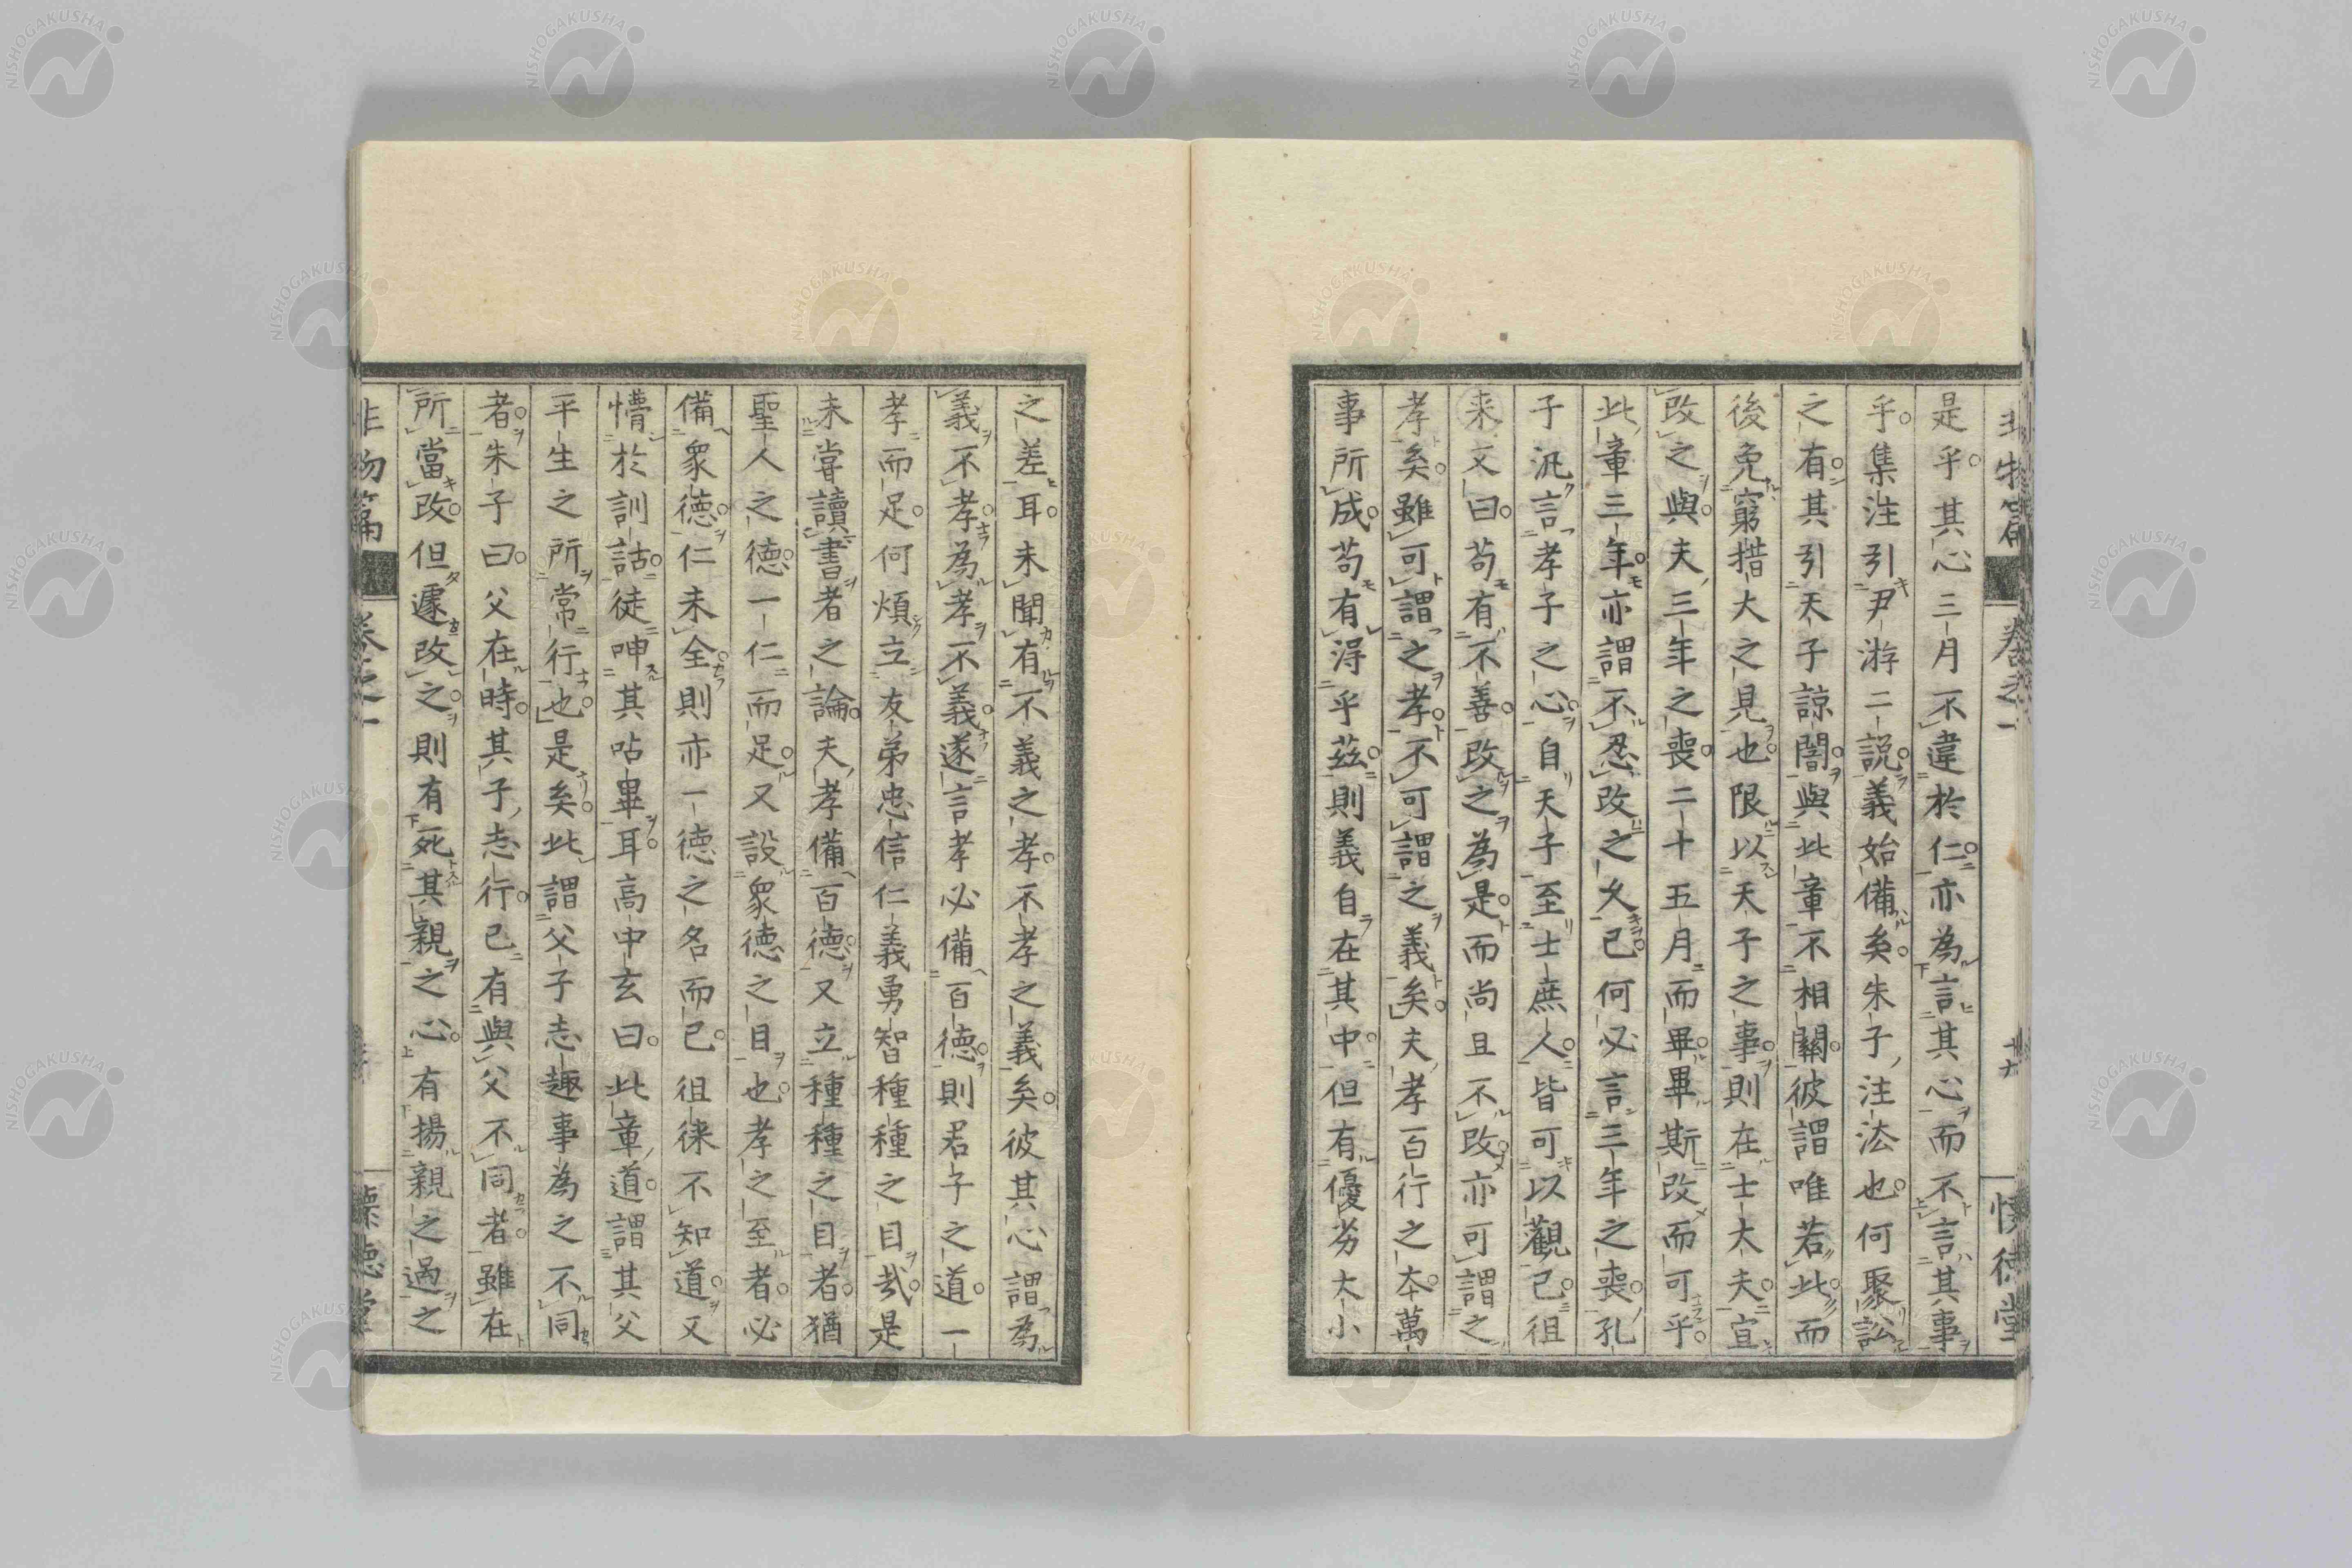 是乎其心三月不違於仁亦為言其心而不言其事
乎集注引尹游二說義始備矣朱子注法也何聚訟
之有其引天子諒闇與此章不相關彼謂唯若此而
後免窮措大之見也限以天子之事則在士大夫宜
改之與夫三年之喪二十五月而畢畢斯改而可乎
此章三年亦謂不忍改之久已何必言三年之喪孔
子汎言孝子之心自天子至士庶人皆可以觀已徂
来又曰苟有不善改之為是而尚且不改亦可謂之
孝矣雖可謂之孝不可謂之義矣夫孝百行之本萬
事所成苟有得乎茲則義自在其中但有優劣大小
之差耳未聞有不義之孝不孝之義矣彼其心謂為
義不孝為孝不義遂言孝必備百德則君子之道一
孝而足何煩立友弟忠信仁義勇智種種之目哉是
未嘗讀書者之論夫孝備百德又立種種之目者猶
聖人之德一仁而足又設衆德之目也孝之至者必
備衆德仁未全則亦一德之名而已徂徠不知道又
懵於訓詁徒呻其呫畢耳高中玄曰此章道謂其父
平生之所常行也是矣此謂父子志趣事為之不同
者朱子曰父在時其子志行已有與父不同者雖在
所當改但遽改之則有死其親之心有揚親之過之
非物篇
卷之一
懷德堂
NISHOGAKUSHA